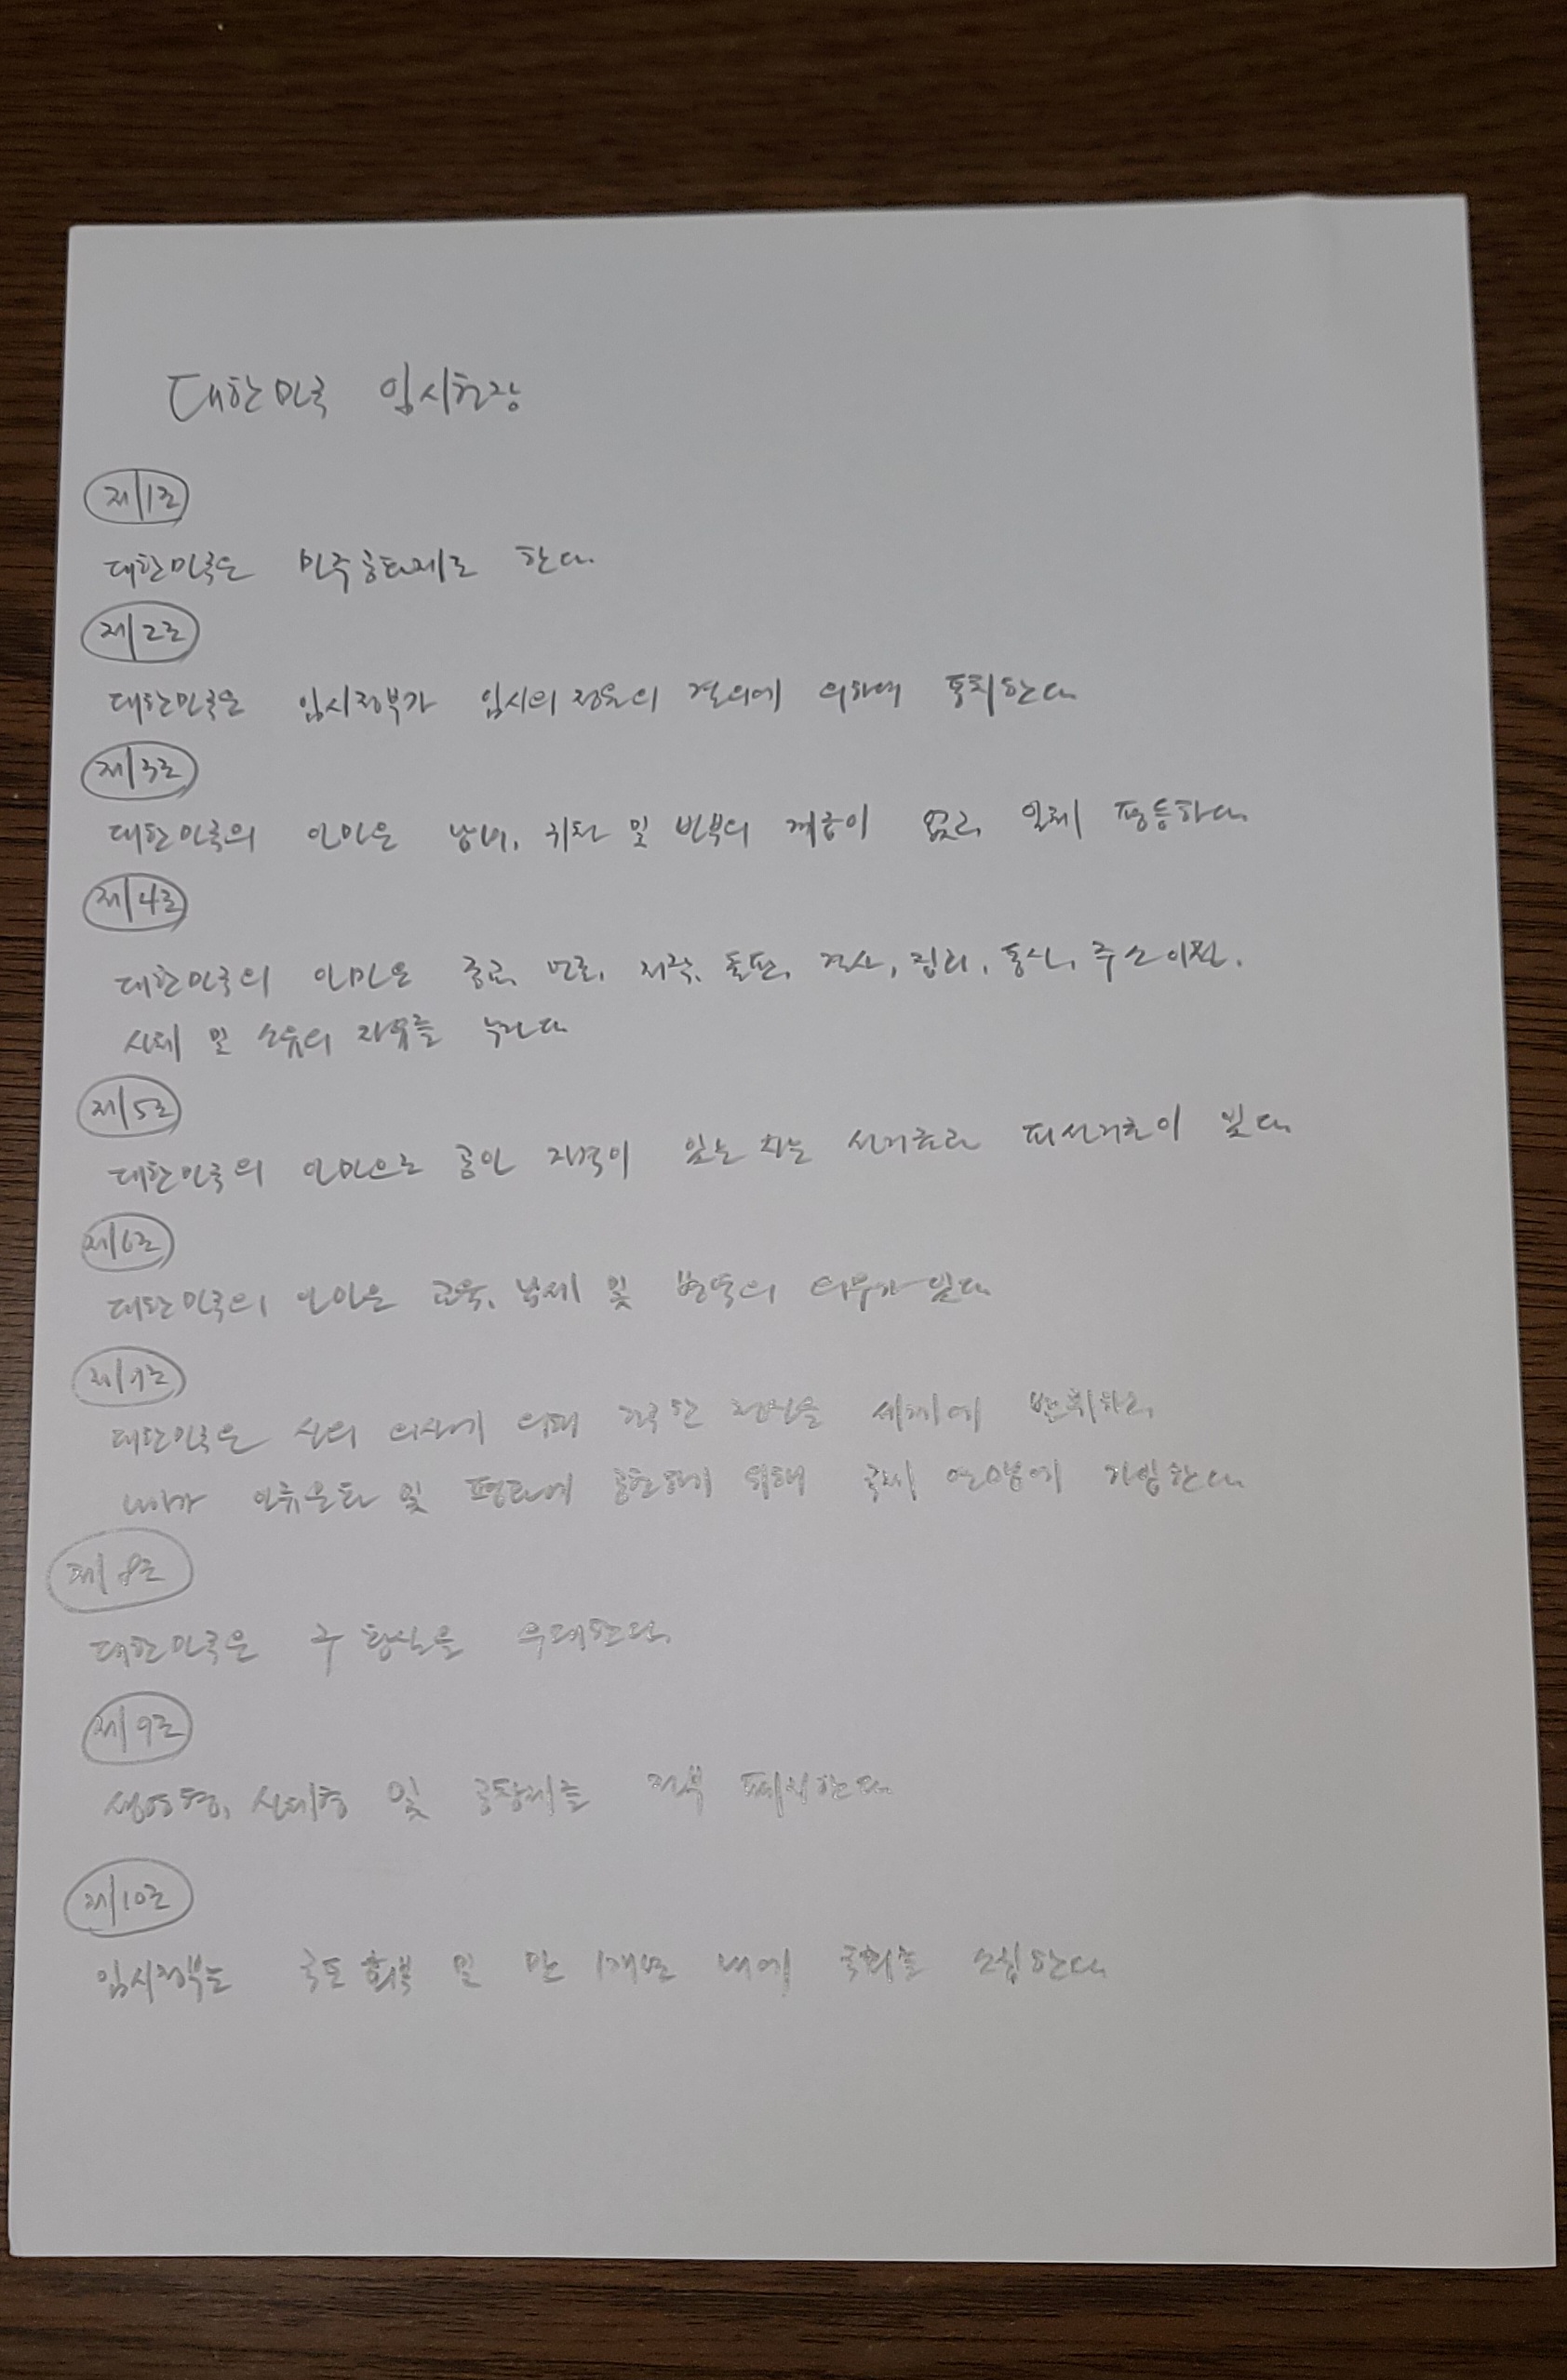 대한민국 임시헌장
제1조
대한민국은 민주공화제로 한다.
제2조
대한민국은 임시정부가 임시의정원의 결의에 의하여 통치한다
제3조
대한민국의 인민은 남녀, 귀천 및 빈부의 계급이 없고 일체 평등하다.
제4조
대한민국의 인민은 종교, 언론, 저작, 출판, 결사, 집회, 통신, 주소이전,
신체 및 소유의 자유를 누린다
제5조
대한민국의 인민으로 공민 자격이 있는 자는 선거권과 피선거권이 있다.
제6조
대한민국의 인민은 교육, 납세 및 병역의 의무가 있다.
제7조
대한민국은 신의 의사에 의해 건국한 정신을 세계에 발휘하고
나아가 인류문화 및 평화에 공헌하기 위해 국제 연맹에 가입한다.
제8조
대한민국은 구 황실을 우대한다.
제9조
생명형, 신체형 및 공창제를 전부 폐지한다.
제10조
임시정부는 국토 회복 후 만 1개년 내에 국회를 소집한다.